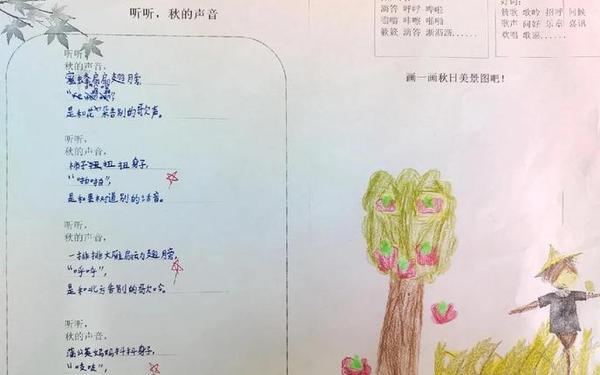 听听，秋的声音
听听，
秋的声音，
蜜蜂扇扇翅膀，
是和花朵告别的歌声。
听听，
秋的声音，
柿子扭扭身子，
“啪啪”，
是和果树道别的话音。
听听，
秋的声音，
一排排大雁扇动翅膀，
“呼呼”，
是和北方告别的歌吟。
听听，
秋的声音，
蒲公英妈妈抖抖身子，
“吱吱”，
滴答 呼呼 哗啦
嗡嗡 咔嚓 啪啪
簌簌 滴答 淅沥沥……
歌吟 招呼 问候
歌声 问好 乐章 喜讯
欢唱 歌谣……
画一画秋日美景图吧！